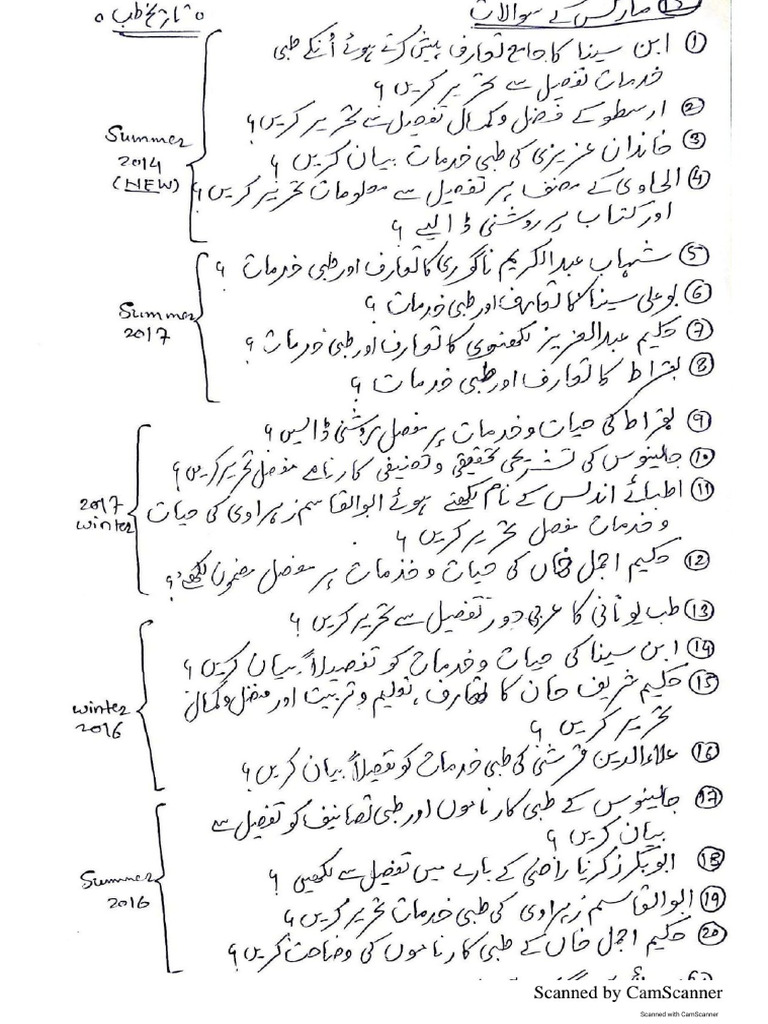 (12) مارکس کے سوالات ° تاریخ طب °
① ابن سینا کا جامع تعارف پیش کرتے ہوئے اُنکے طبی
خدمات تفصیل سے تحریر کریں ؟
② ارسطو کے فضل و کمال تفصیل سے تحریر کریں ؟
③ خاندان عزیزی کی طبی خدمات بیان کریں ؟
④ الحاوی کے مصنف پر تفصیل سے معلومات تحریر کریں ؟
اور کتاب پر روشنی ڈالیے ؟
Summer
2014
(NEW)
⑤ شہاب عبدالکریم ناگوری کا تعارف اور طبی خدمات ؟
⑥ بو علی سینا کا تعارف اور طبی خدمات ؟
⑦ حکیم عبدالعزیز لکھنوی کا تعارف اور طبی خدمات ؟
⑧ بقراط کا تعارف اور طبی خدمات ؟
Summer
2017
⑨ بقراط کی حیات و خدمات پر مفصل روشنی ڈالیں ؟
⑩ جالینوس کی تشریحی تحقیقی و تصنیفی کارنامے مفصل تحریر کریں ؟
⑪ اطبائے اندلس کے نام لکھتے ہوئے ابوالقاسم زہراوی کی حیات
و خدمات مفصل تحریر کریں ؟
⑫ حکیم اجمل خاں کی حیات و خدمات پر مفصل مضمون لکھیے ؟
2017
winter
⑬ طب یونانی کا عربی دور تفصیل سے تحریر کریں ؟
⑭ ابن سینا کی حیات و خدمات کو تفصیلاً بیان کریں ؟
⑮ حکیم شریف خان کا تعارف، تعلیم و تربیت اور فضل و کمال
تحریر کریں ؟
⑯ علاءالدین قرشی کی طبی خدمات کو تفصیلاً بیان کریں ؟
winter
2016
⑰ جالینوس کے طبی کارناموں اور طبی تصانیف کو تفصیل سے
بیان کریں ؟
⑱ ابوبکر زکریا راضی کے بارے میں تفصیل سے لکھیں ؟
⑲ ابوالقاسم زہراوی کی طبی خدمات تحریر کریں ؟
⑳ حکیم اجمل خاں کے طبی کارناموں کی وضاحت کریں ؟
Summer
2016
Scanned by CamScanner
Scanned with CamScanner